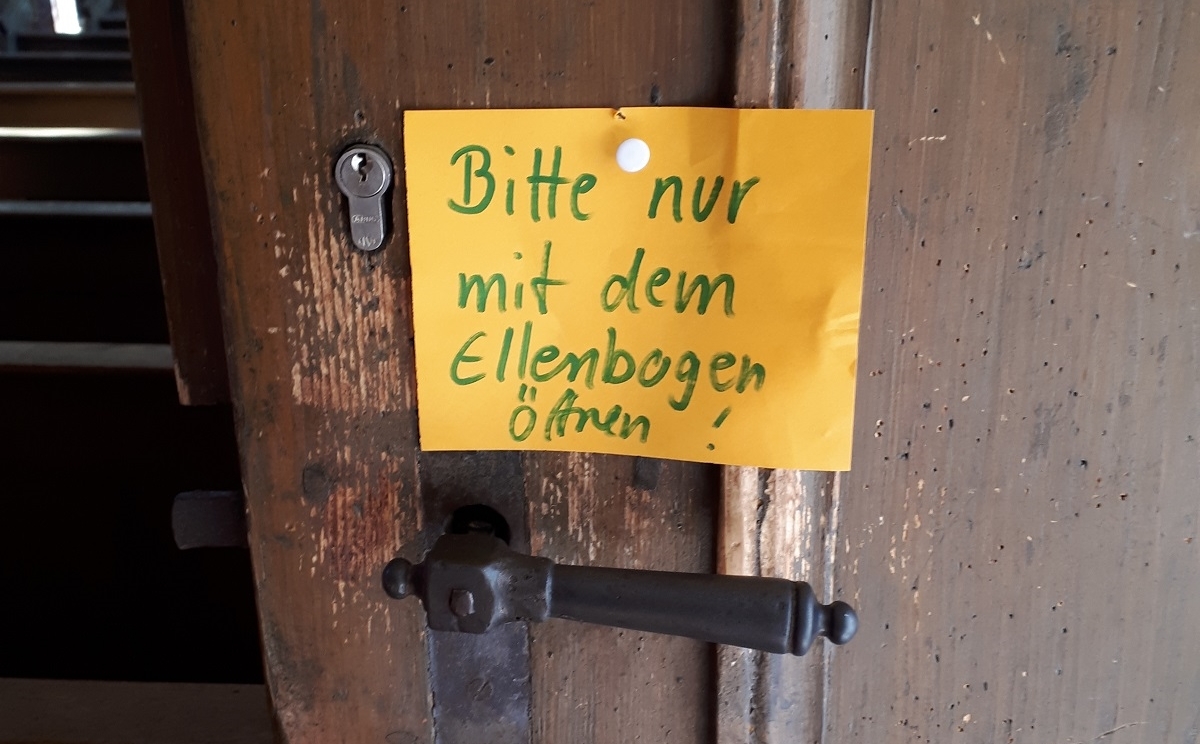 Bitte nur
mit dem
Ellenbogen
Öffnen !